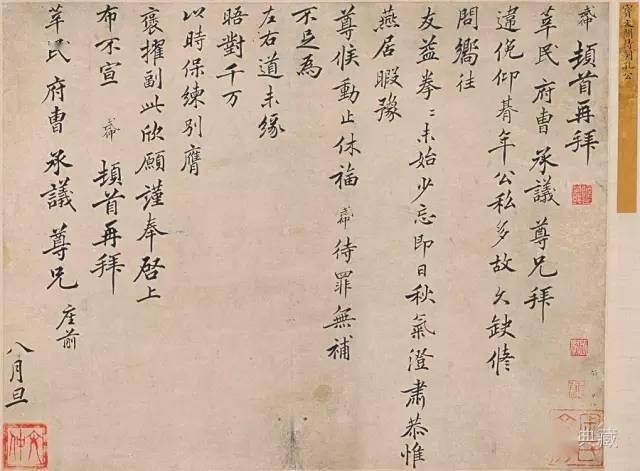 寶文閣待制孔公
頓首再拜
莘民府曹承議尊兄拜
違俛仰朞年公私多故久缺脩
問嚮往
友益拳〻未始少忘即日秋氣澄肅恭惟
燕居暇豫
尊候動止休福 待罪無補
不足為
左右道未緣
晤對千万
以時保練別膺
褒擢副此欣願謹奉啓上
布不宣 頓首再拜
莘民府曹承議尊兄 座前
八月旦
典藏